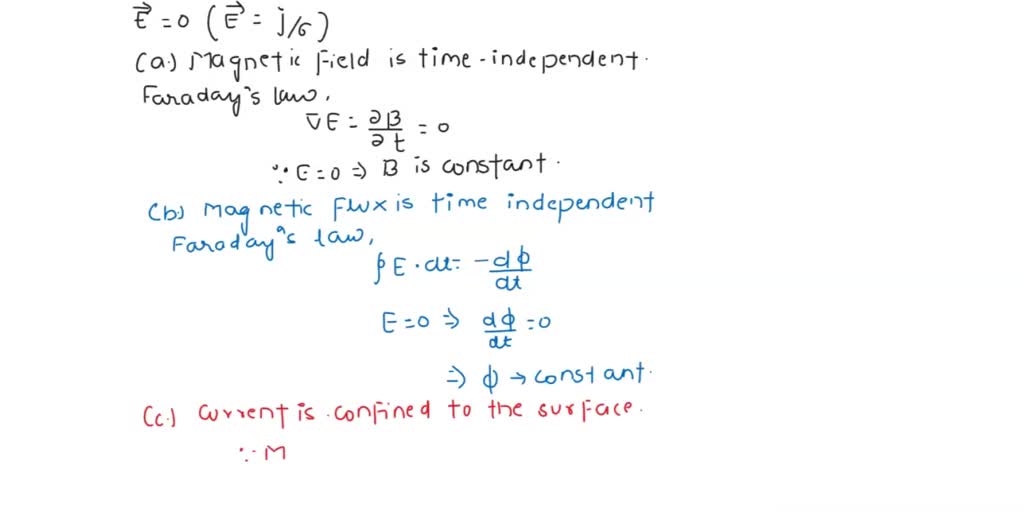 E⃗ = 0 ( E⃗ = j/σ )
(a.) Magnetic Field is time-independent.
Faraday's law,
∇E = ∂B/∂t = 0
∵ E = 0 ⇒ B is constant.
(b.) Magnetic Flux is time independent
Faraday's law,
∮ E · dl = - dϕ/dt
E = 0 ⇒ dϕ/dt = 0
⇒ ϕ → constant.
(c.) Current is confined to the surface.
∵ M